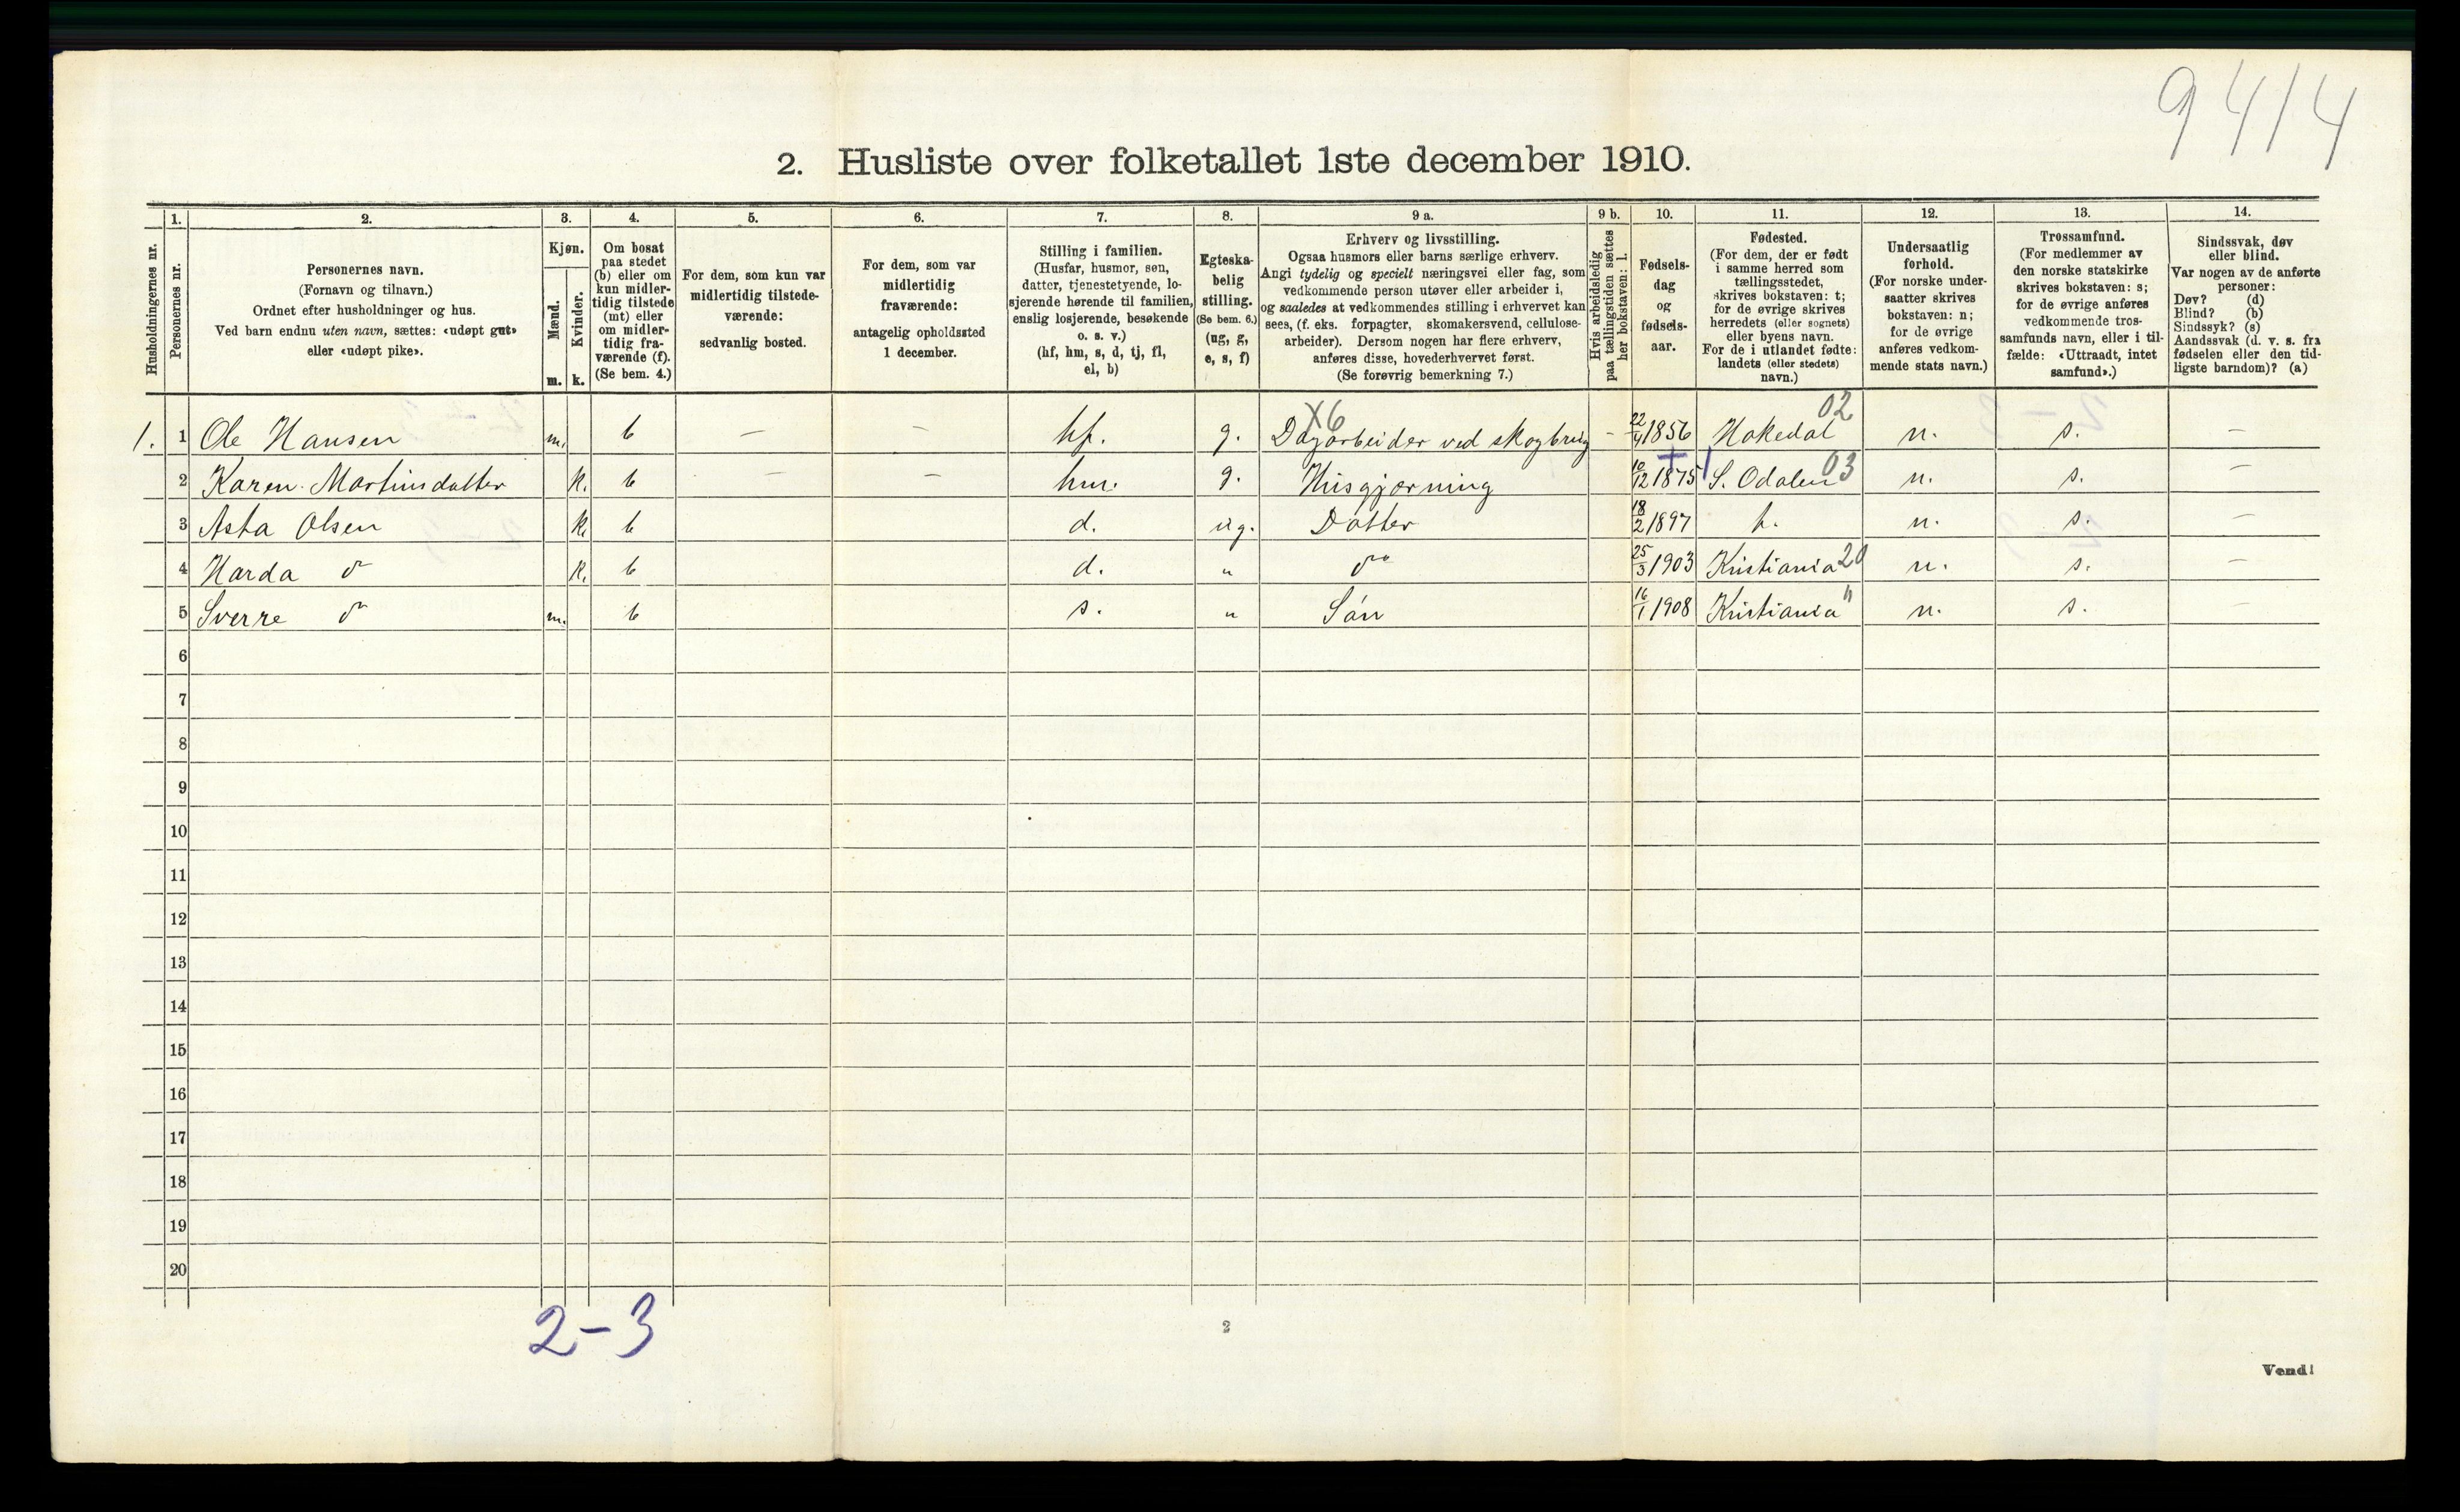 9414
2. Husliste over folketallet 1ste december 1910.
Husholdningernes nr.
1.
Personernes nr.
2.
Personernes navn.
(Fornavn og tilnavn.)
Ordnet efter husholdninger og hus.
Ved barn endnu uten navn, sættes: «udøpt gut»
eller «udøpt pike».
3.
Kjøn.
Mænd.
Kvinder.
m. k.
4.
Om bosat
paa stedet
(b) eller om
kun midler-
tidig tilstede
(mt) eller
om midler-
tidig fra-
værende (f).
(Se bem. 4.)
5.
For dem, som kun var
midlertidig tilstede-
værende:
sedvanlig bosted.
6.
For dem, som var
midlertidig
fraværende:
antagelig opholdssted
1 december.
7.
Stilling i familien.
(Husfar, husmor, søn,
datter, tjenestetyende, lo-
sjerende hørende til familien,
enslig losjerende, besøkende
o. s. v.)
(hf, hm, s, d, tj, fl,
el, b)
8.
Egteska-
belig
stilling.
(Se bem. 6.)
(ug, g,
e, s, f)
9 a.
Erhverv og livsstilling.
Ogsaa husmors eller barns særlige erhverv.
Angi tydelig og specielt næringsvei eller fag, som
vedkommende person utøver eller arbeider i,
og saaledes at vedkommendes stilling i erhvervet kan
sees, (f. eks. forpagter, skomakersvend, cellulose-
arbeider). Dersom nogen har flere erhverv,
anføres disse, hovederhvervet først.
(Se forøvrig bemerkning 7.)
9 b.
Hvis arbeidsledig
paa tællingstiden sættes
her bokstaven: l.
10.
Fødsels-
dag
og
fødsels-
aar.
11.
Fødested.
(For dem, der er født
i samme herred som
tællingsstedet,
skrives bokstaven: t;
for de øvrige skrives
herredets (eller sognets)
eller byens navn.
For de i utlandet fødte:
landets (eller stedets)
navn.)
12.
Undersaatlig
forhold.
(For norske under-
saatter skrives
bokstaven: n;
for de øvrige
anføres vedkom-
mende stats navn.)
13.
Trossamfund.
(For medlemmer av
den norske statskirke
skrives bokstaven: s;
for de øvrige anføres
vedkommende tros-
samfunds navn, eller i til-
fælde: «Uttraadt, intet
samfund».)
14.
Sindssvak, døv
eller blind.
Var nogen av de anførte
personer:
Døv? (d)
Blind? (b)
Sindssyk? (s)
Aandssvak (d. v. s. fra
fødselen eller den tid-
ligste barndom)? (a)
X6 02
1. 1 Ole Hansen m. b — — hf. g. Dagarbeider ved skogbrug - 22/4 1856 Hakedal n. s. —
2 Karen Martinsdatter k. b — — hm. g. Husgjørning 10/12 1875 S. Odalen 03 n. s. —
3 Asta Olsen k. b d. ug. Datter 18/2 1897 t. n. s. —
4 Harda do k. b d. " do 25/3 1903 Kristiania 20 n. s. —
5 Sverre do m. b s. " Søn 16/1 1908 Kristiania " n. s. —
6
7
8
9
10
11
12
13
14
15
16
17
18
19
20
2-3
2
Vend!